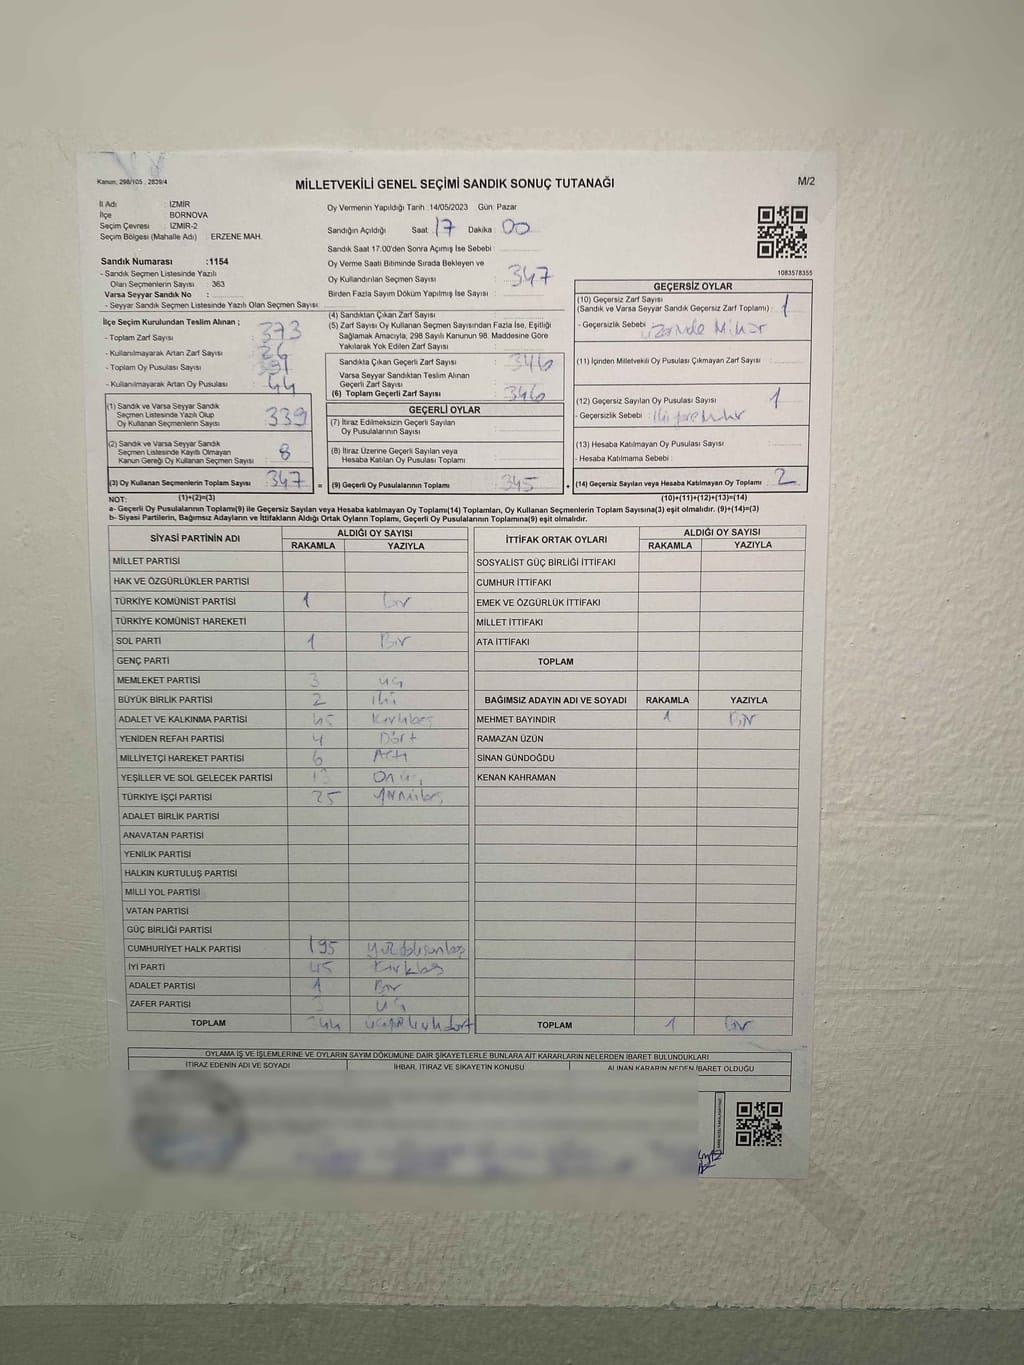 Kanun; 298/105 , 2839/4
MİLLETVEKİLİ GENEL SEÇİMİ SANDIK SONUÇ TUTANAĞI
M/2
İl Adı : İZMİR
İlçe BORNOVA
Seçim Çevresi : İZMİR-2
Seçim Bölgesi (Mahalle Adı) : ERZENE MAH.
Sandık Numarası :1154
- Sandık Seçmen Listesinde Yazılı
Olan Seçmenlerin Sayısı : 363
Varsa Seyyar Sandık No :
- Seyyar Sandık Seçmen Listesinde Yazılı Olan Seçmen Sayısı:
Oy Vermenin Yapıldığı Tarih :14/05/2023 Gün: Pazar
Sandığın Açıldığı Saat : 17 Dakika : 00
Sandık Saat 17:00'den Sonra Açımış İse Sebebi :
Oy Verme Saati Bitiminde Sırada Bekleyen ve
Oy Kullandırılan Seçmen Sayısı : 347
Birden Fazla Sayım Döküm Yapılmış İse Sayısı :
1083578355
İlçe Seçim Kurulundan Teslim Alınan ;
- Toplam Zarf Sayısı : 373
- Kullanılmayarak Artan Zarf Sayısı : 26
- Toplam Oy Pusulası Sayısı : 391
- Kullanılmayarak Artan Oy Pusulası : 44
(1) Sandık ve Varsa Seyyar Sandık
Seçmen Listesinde Yazılı Olup
Oy Kullanan Seçmenlerin Sayısı : 339
(2) Sandık ve Varsa Seyyar Sandık
Seçmen Listesinde Kayıtlı Olmayan
Kanun Gereği Oy Kullanan Seçmen Sayısı : 8
(3) Oy Kullanan Seçmenlerin Toplam Sayısı : 347 =
(4) Sandıktan Çıkan Zarf Sayısı :
(5) Zarf Sayısı Oy Kullanan Seçmen Sayısından Fazla İse, Eşitliği
Sağlamak Amacıyla, 298 Sayılı Kanunun 98. Maddesine Göre
Yakılarak Yok Edilen Zarf Sayısı :
Sandıkta Çıkan Geçerli Zarf Sayısı : 346
Varsa Seyyar Sandıktan Teslim Alınan
Geçerli Zarf Sayısı :
(6) Toplam Geçerli Zarf Sayısı : 346
GEÇERLİ OYLAR
(7) İtiraz Edilmeksizin Geçerli Sayılan
Oy Pusulalarının Sayısı :
(8) İtiraz Üzerine Geçerli Sayılan veya
Hesaba Katılan Oy Pusulası Toplamı :
(9) Geçerli Oy Pusulalarının Toplamı : 345 +
GEÇERSİZ OYLAR
(10) Geçersiz Zarf Sayısı
(Sandık ve Varsa Seyyar Sandık Geçersiz Zarf Toplamı) : 1
- Geçersizlik Sebebi : üzerinde Mühür
(11) İçinden Milletvekili Oy Pusulası Çıkmayan Zarf Sayısı :
(12) Geçersiz Sayılan Oy Pusulası Sayısı : 1
- Geçersizlik Sebebi :
(13) Hesaba Katılmayan Oy Pusulası Sayısı :
- Hesaba Katılmama Sebebi :
(14) Geçersiz Sayılan veya Hesaba Katılmayan Oy Toplamı : 2
NOT: (1)+(2)=(3) (10)+(11)+(12)+(13)=(14)
a- Geçerli Oy Pusulalarının Toplamı(9) ile Geçersiz Sayılan veya Hesaba Katılmayan Oy Toplamı(14) Toplamları, Oy Kullanan Seçmenlerin Toplam Sayısına(3) eşit olmalıdır. (9)+(14)=(3)
b- Siyasi Partilerin, Bağımsız Adayların ve İttifakların Aldığı Ortak Oyların Toplamı, Geçerli Oy Pusulalarının Toplamına(9) eşit olmalıdır.
SİYASİ PARTİNİN ADI ALDIĞI OY SAYISI
RAKAMLA YAZIYLA
MİLLET PARTİSİ
HAK VE ÖZGÜRLÜKLER PARTİSİ
TÜRKİYE KOMÜNİST PARTİSİ 1 Bir
TÜRKİYE KOMÜNİST HAREKETİ
SOL PARTİ 1 Bir
GENÇ PARTİ
MEMLEKET PARTİSİ 3 üç
BÜYÜK BİRLİK PARTİSİ 2 iki
ADALET VE KALKINMA PARTİSİ 45 Kırkbeş
YENİDEN REFAH PARTİSİ 4 Dört
MİLLİYETÇİ HAREKET PARTİSİ 6 Altı
YEŞİLLER VE SOL GELECEK PARTİSİ 13 On üç
TÜRKİYE İŞÇİ PARTİSİ 25 Yirmibeş
ADALET BİRLİK PARTİSİ
ANAVATAN PARTİSİ
YENİLİK PARTİSİ
HALKIN KURTULUŞ PARTİSİ
MİLLİ YOL PARTİSİ
VATAN PARTİSİ
GÜÇ BİRLİĞİ PARTİSİ
CUMHURİYET HALK PARTİSİ 195 yüzdoksanbeş
İYİ PARTİ 45 Kırkbeş
ADALET PARTİSİ 1 Bir
ZAFER PARTİSİ 3 üç
TOPLAM 344 üçyüzkırkdört
İTTİFAK ORTAK OYLARI ALDIĞI OY SAYISI
RAKAMLA YAZIYLA
SOSYALİST GÜÇ BİRLİĞİ İTTİFAKI
CUMHUR İTTİFAKI
EMEK VE ÖZGÜRLÜK İTTİFAKI
MİLLET İTTİFAKI
ATA İTTİFAKI
TOPLAM
BAĞIMSIZ ADAYIN ADI VE SOYADI RAKAMLA YAZIYLA
MEHMET BAYINDIR 1 Bir
RAMAZAN ÜZÜN
SİNAN GÜNDOĞDU
KENAN KAHRAMAN
TOPLAM 1 Bir
OYLAMA İŞ VE İŞLEMLERİNE VE OYLARIN SAYIM DÖKÜMÜNE DAİR ŞİKAYETLERLE BUNLARA AİT KARARLARIN NELERDEN İBARET BULUNDUKLARI
İTİRAZ EDENİN ADI VE SOYADI İHBAR, İTİRAZ VE ŞİKAYETİN KONUSU ALINAN KARARIN NEDEN İBARET OLDUĞU